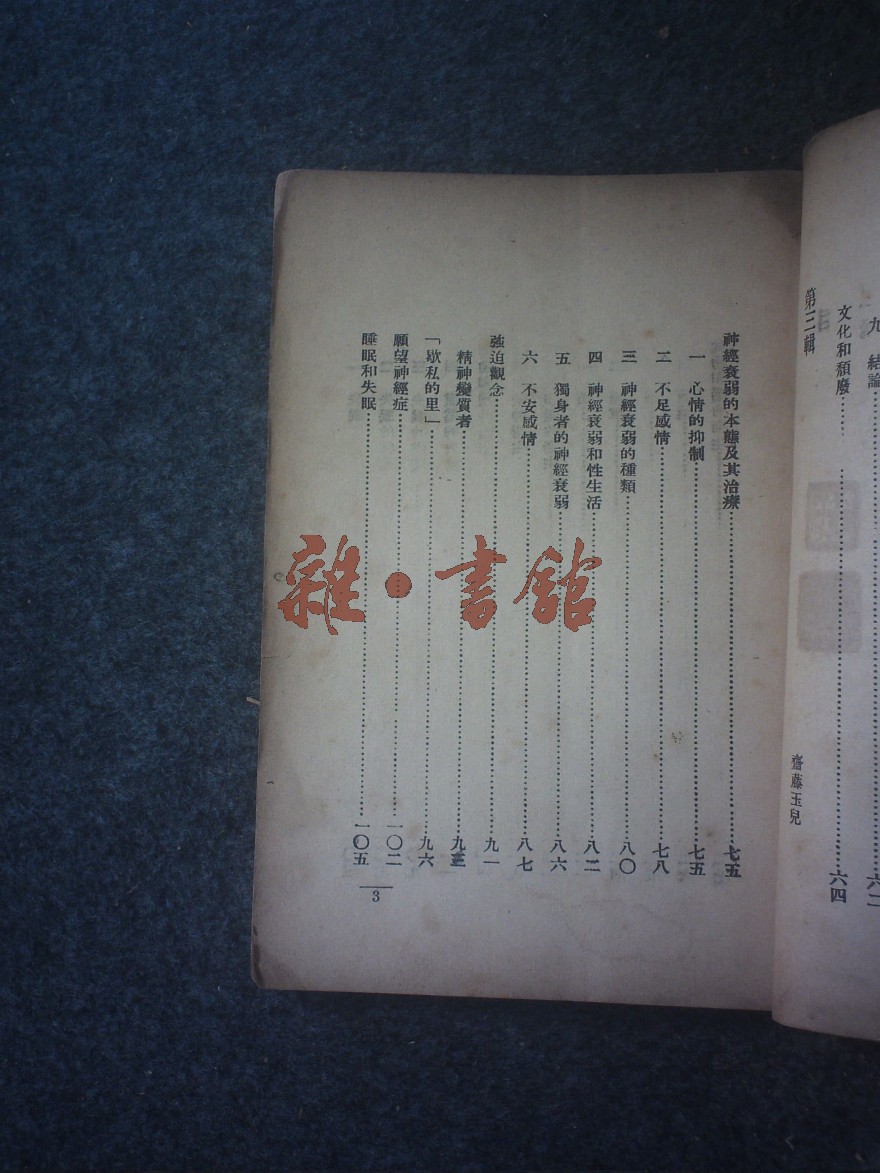 九 結論……六二
文化和頹廢……六四
第三輯 齋藤玉兒
神經衰弱的本態及其治療……七五
一 心情的抑制……七五
二 不足感情……七八
三 神經衰弱的種類……八〇
四 神經衰弱和性生活……八二
五 獨身者的神經衰弱……八六
六 不安感情……八七
強迫觀念……九一
精神變質者……九三
「歇私的里」……九六
願望神經症……一〇二
睡眠和失眠……一〇五
3
雜·書館